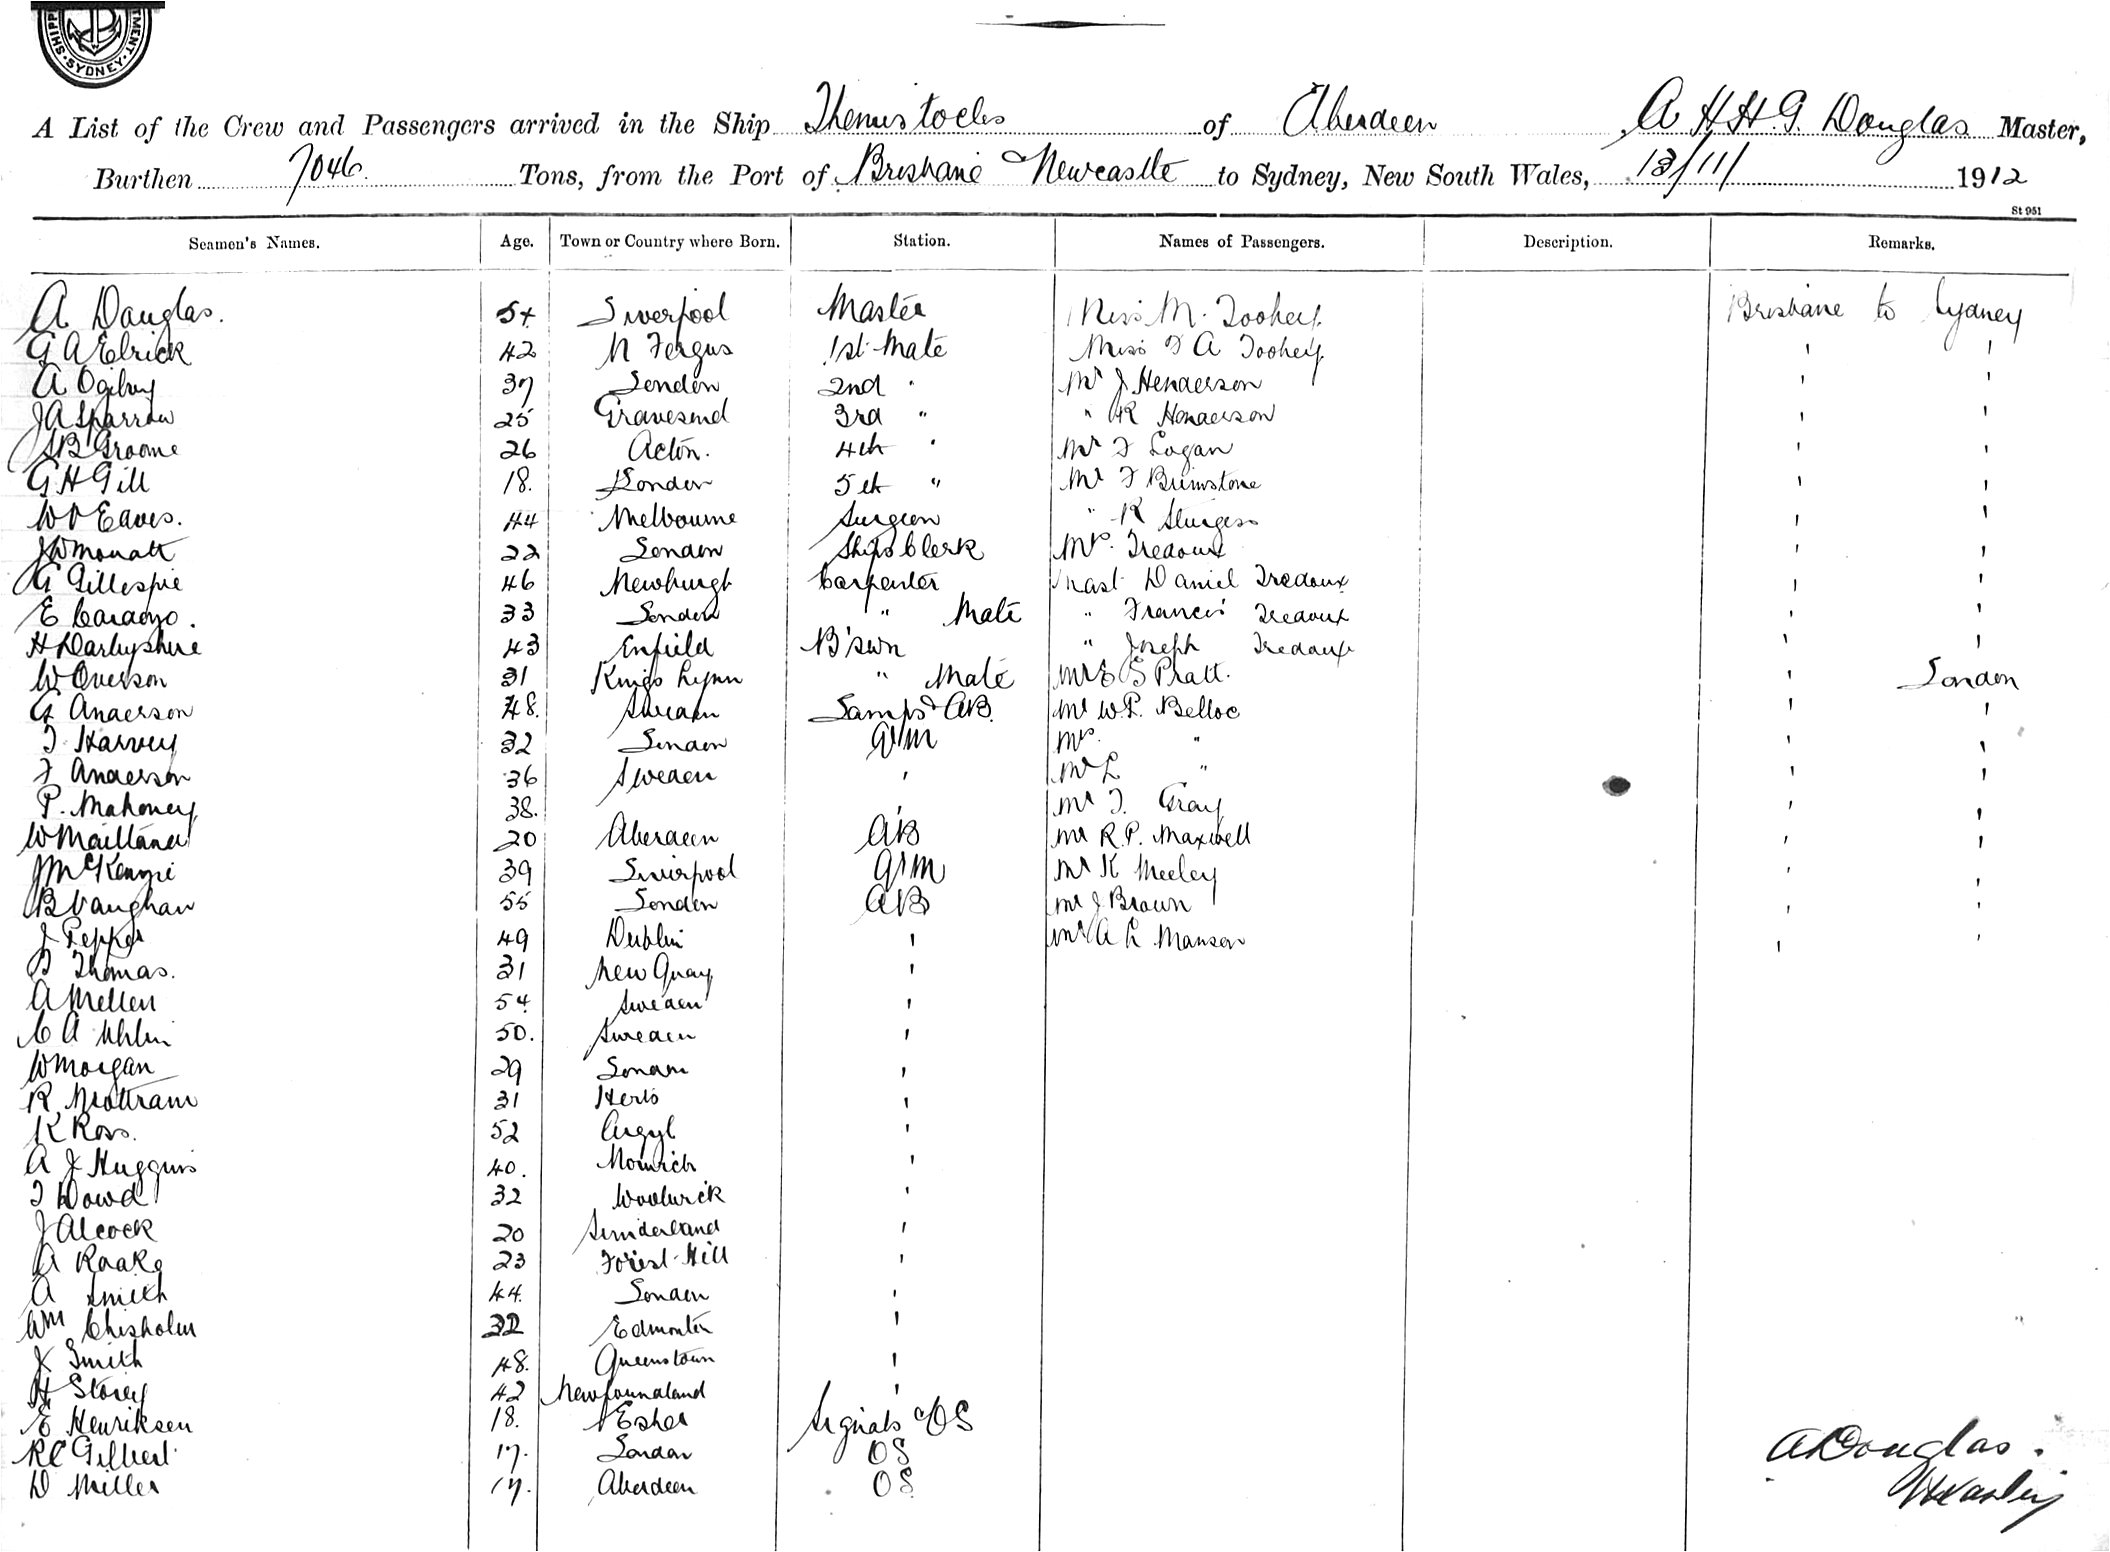 SHIPP MENT. SYDNEY.
A List of the Crew and Passengers arrived in the Ship Themistocles of Aberdeen A H H. G. Douglas Master,
Burthen 7046. Tons, from the Port of Brisbane & Newcastle to Sydney, New South Wales, 13/11/ 1912
St 951
Seamen's Names. Age. Town or Country where Born. Station. Names of Passengers. Description. Remarks.
A Douglas. 54. Liverpool Master Miss M. Toohey. Brisbane to Sydney
G A Elrick 42 N Fergus 1st Mate Miss F A Toohey. ' '
A Ogilvy 37 London 2nd " Mr J Henderson ' '
J A Sparrow 25 Gravesend 3rd " " R Henderson ' '
B Groome 26 Acton. 4th " Mr F Logan ' '
G H Gill 18. London 5th " Mr F Brimstone ' '
W Eaves. 44 Melbourne Surgeon " R Sturgess ' '
J W Mouatt 22 London Ships Clerk Mrs. Tredoux ' '
G Gillespie 46 Newburgh Carpenter Mast Daniel Tredoux ' '
E 33 London " Mate " Francis Tredoux ' '
H Darbyshire 43 Enfield B'swn " Joseph Tredoux ' '
W Overson 31 Kings Lynn " Mate Mr E S Pratt. ' London
G Anderson 48. Sweden Lamps & AB. Mr W. P. Belloc ' '
T Harvey 32 London Q'M Mrs. " ' '
F Anderson 36 Sweden ' Mr L " ' '
P. Mahoney 38. ' Mr T. Gray ' '
W Maitland 20 Aberdeen AB Mr R. P. Maxwell ' '
J McKenzie 39 Liverpool Q'M Mr K Meeley ' '
B Vaughan 55 London AB Mr J Brown ' '
J Pepper 49 Dublin ' Mr A L Manson ' '
B Thomas. 31 New Quay '
A Mellen 54. Sweden '
C A Uhlin 50. Sweden '
W Morgan 29 London '
R Mottram 31 Herts '
K Ross. 52 Argyl '
A J Huggins 40. Norwich '
T Dowd 32 Woolwich '
J Alcock 20 Sunderland '
A Raake 23 Forest Hill '
A Smith 44. London '
Wm Chisholm 32 Edmonton '
J Smith 48. Queenstown '
H Storey 42 Newfoundland '
E Henriksen 18. Esher Signals & OS
R C Gilbert 17. London OS
D Miller 17. Aberdeen OS
A Douglas.